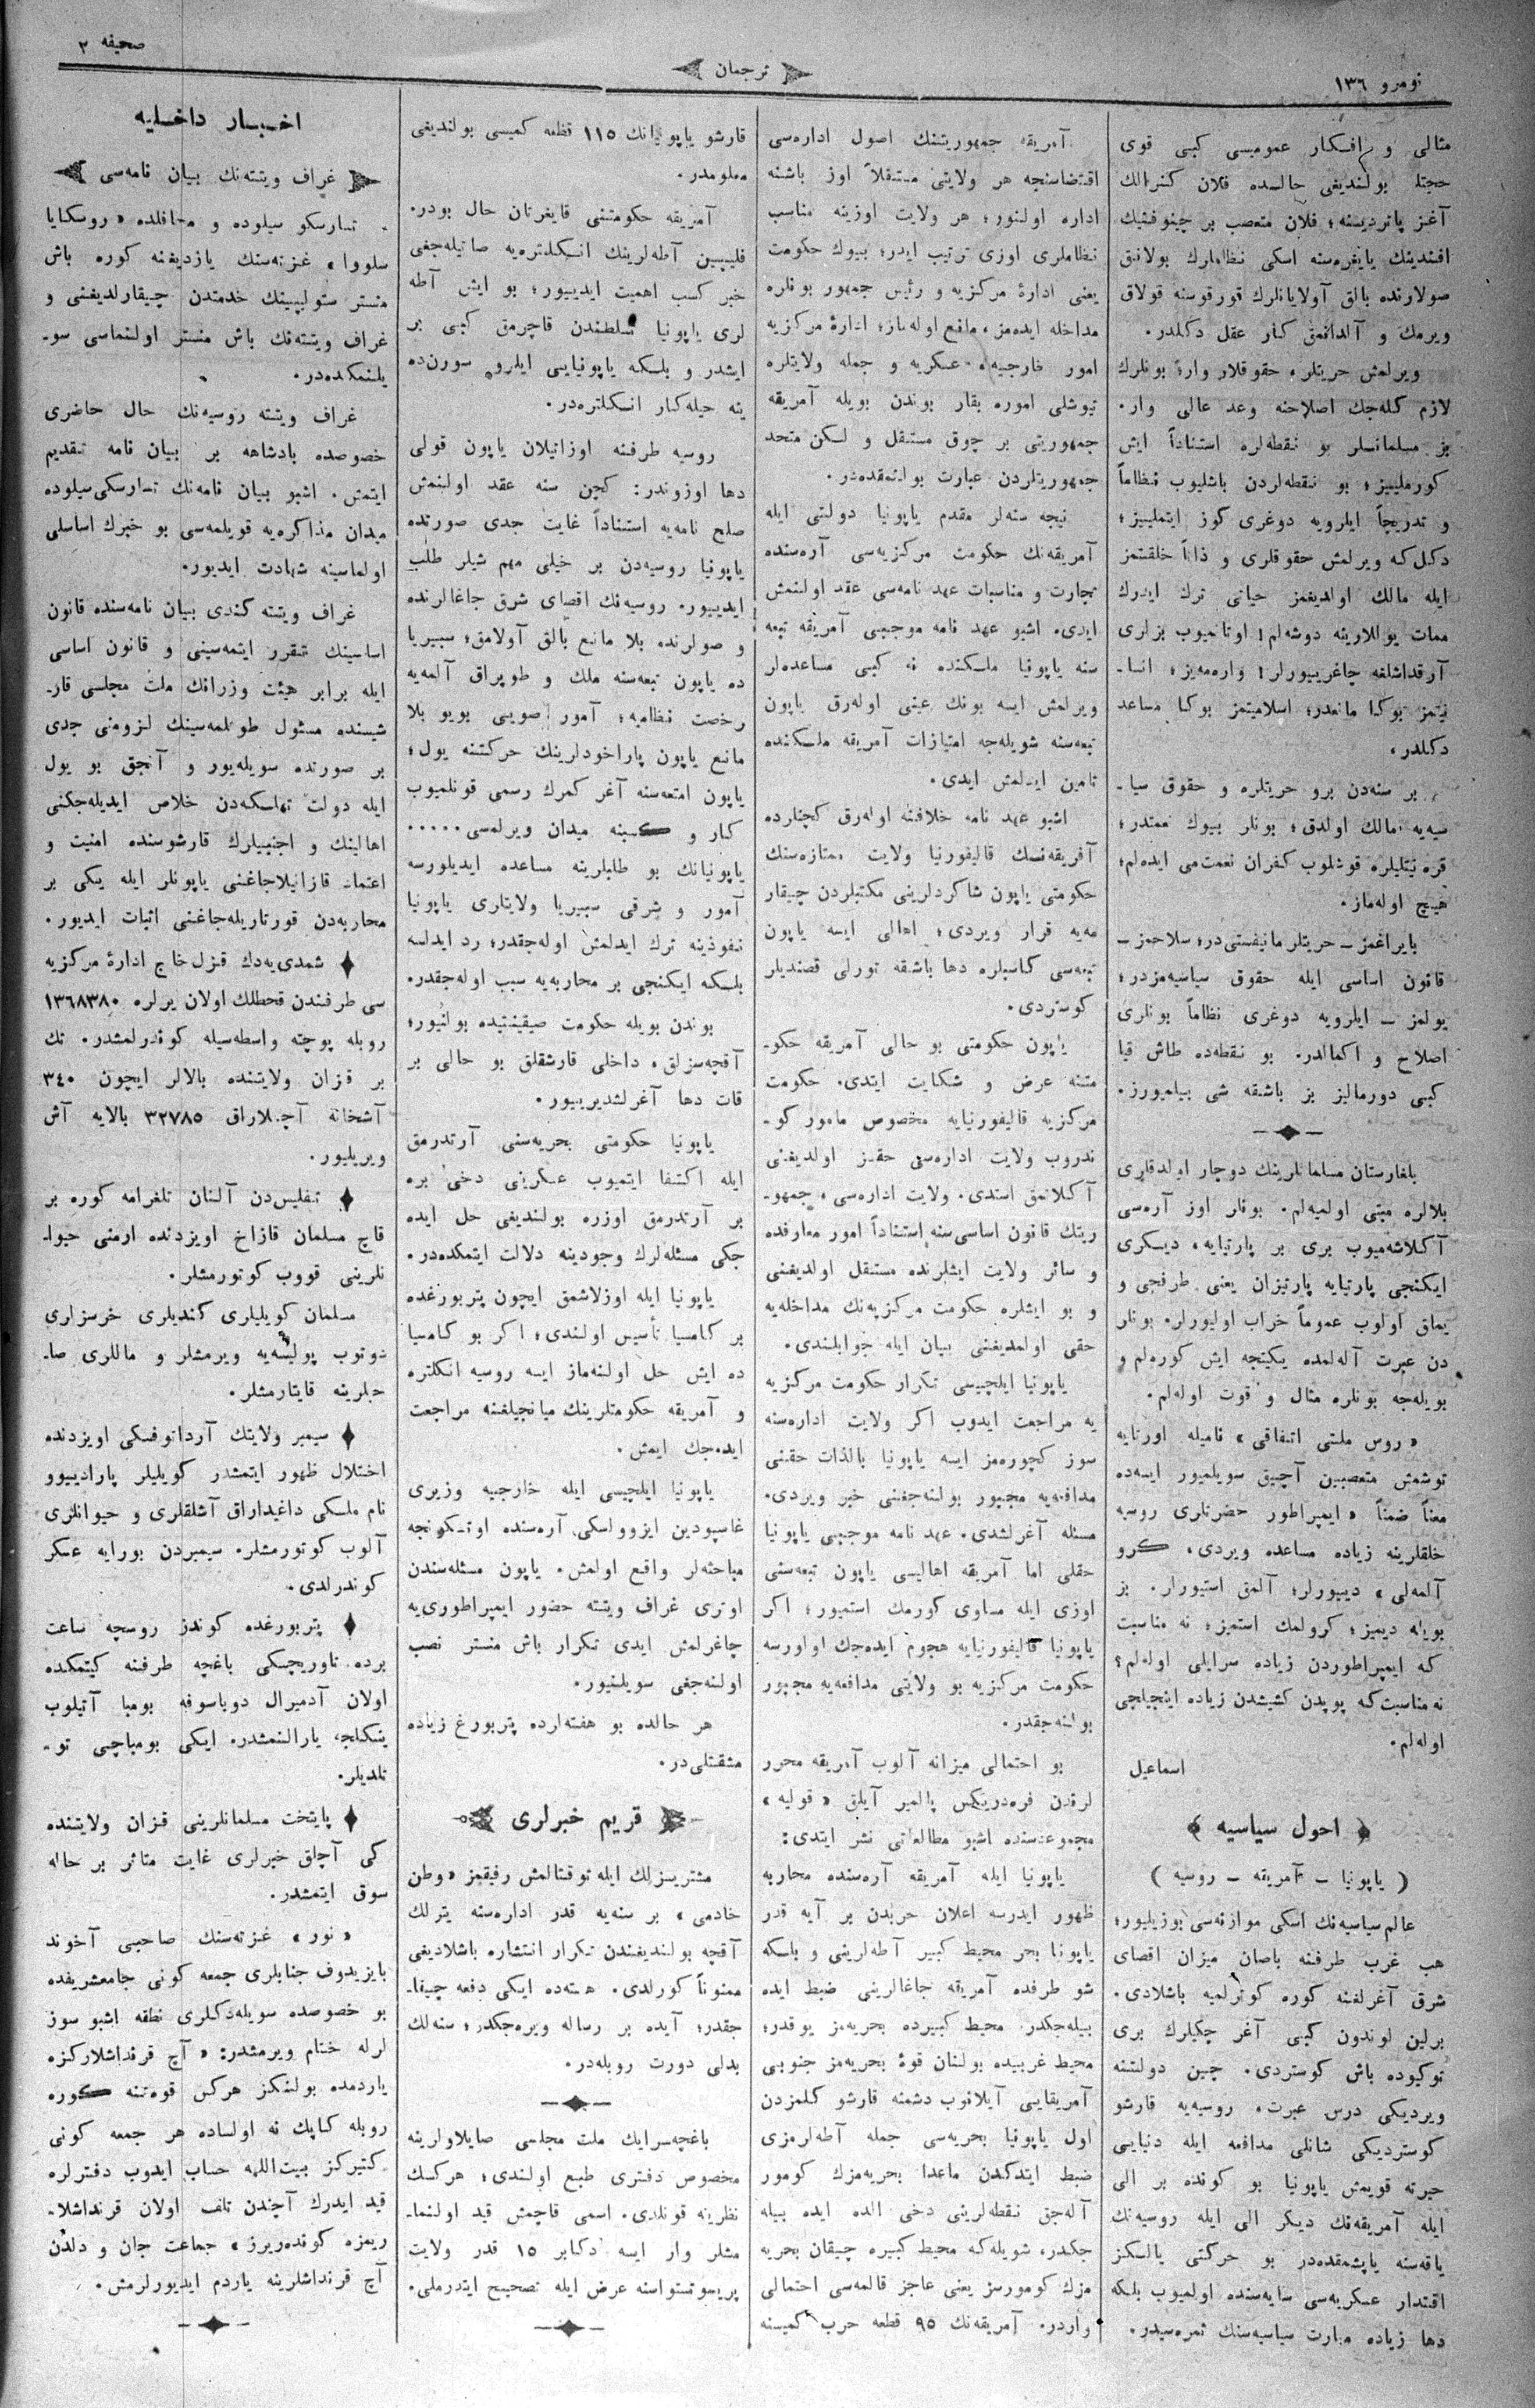 نومرو ١٣٦
ترجمان
صحيفه ٢
مثالى و افكار عموميسى كبى قوى
حجتلا بولنديغى حالده فلان كنرالك
آغز پاترديسنه؛ فلان متعصب بر چينوفنيك
افندينك يايغره‌سنه اسكى نظاملرك بولانق
صولارنده بالق آولايانلرك قورقوسنه قولاق
ويرمك و آلدانمق كار عقل دكلدر.
ويرلمش حريتلر، حقوقلار وار؛ بونلرك
لازم كله‌جك اصلاحنه وعد عالى وار.
بز مسلمانلر بو نقطه‌لره استناداً ايش
كورملييز؛ بو نقطه‌لردن باشليوب نظاماً
و تدريجاً ايلرويه دوغرى كوز ايتملييز؛
دكل‌كه ويرلمش حقوقلرى و ذاتاً خلقتمز
ايله مالك اولديغمز حياتى ترك ايدرك
ممات يوللارينه دوشه‌لم! اوتانميوب بزلرى
آرقداشلغه چاغرييورلر! واره‌مه‌يز؛ انسا-
نيتمز بوكا مانعدر؛ اسلاميتمز بوكا مساعد
دكلدر،
بر سنه‌دن برو حريتلره و حقوق سيا-
سيه‌يه مالك اولدق؛ بونلر بيوك نعمتدر؛
قره نيتليلره قوشلوب كفران نعمت‌مى ايده‌لم؛
هيچ اوله‌ماز.
بايراغمز – حريتلر مانيفستى‌در؛ سلاحمز –
قانون اساسى ايله حقوق سياسيه‌مزدر؛
يولمز – ايلرويه دوغرى نظاماً بونلرى
اصلاح و اكمالدر. بو نقطه‌ده طاش قيا
كبى دورماليز بز باشقه شى بيلميورز.
بلغارستان مسلمانلرينك دوچار اولدقلرى
بلالره مبتى اولميه‌لم. بونلر اوز آره‌سى
آكلاشه‌ميوب برى بر پارتيايه، ديكرى
ايكنجى پارتيايه پارتيزان يعنى طرفجى و
يماق اولوب عموماً خراب اوليورلر. بونلر
دن عبرت آله‌لمده يكيتجه ايش كوره‌لم و
بويله‌جه بونلره مثال و قوت اوله‌لم.
«روس ملتى اتفاقى» ناميله اورتايه
توشمش متعصبين آچيق سويلميور ايسه‌ده
معناً ضمناً «ايمپراطور حضرتلرى روسيه
خلقلرينه زياده مساعده ويردى، كرو
آلمه‌لى» دييورلر؛ آلمق استيورلر. بز
بويله ديميز؛ كرولمك استميز؛ نه مناسبت
كه ايمپراطوردن زياده سرايلى اوله‌لم؟
نه مناسبت‌كه پوپدن كشيشدن زياده اينجيلچى
اوله‌لم.
اسماعيل
احول سياسيه
( ياپونيا – آمريقه – روسيه )
عالم سياسيه‌نك اسكى موازنه‌سى بوزيليور؛
هب غرب طرفنه باصان ميزان اقصاى
شرق آغرلغنه كوره كوترلميه باشلادى.
برلين لوندون كبى آغر چكيلرك برى
توكيوده باش كوستردى. چين دولتنه
ويرديكى درس عبرت، روسيه‌يه قارشو
كوسترديكى شانلى مدافعه ايله دنيايى
حيرته قويمش ياپونيا بو كونده بر الى
ايله آمريقه‌نك ديكر الى ايله روسيه‌نك
ياقه‌سنه ياپشمقده‌در بو حركتى يالكز
اقتدار عسكريه‌سى سايه‌سنده اولميوب بلكه
دها زياده مهارت سياسيه‌سنك ثمره‌سيدر.
آمريقه جمهوريتنك اصول اداره‌سى
اقتضاسنجه هر ولايتى مستقلاً اوز باشنه
اداره اولنور؛ هر ولايت اوزينه مناسب
نظاملرى اوزى ترتيب ايدر؛ بيوك حكومت
يعنى ادارهٔ مركزيه و رئيس جمهور بونلره
مداخله ايده‌مز، مانع اوله‌ماز؛ ادارهٔ مركزيه
امور خارجيه، عسكريه و جمله ولايتلره
تيوشلى اموره بقار بوندن بويله آمريقه
جمهوريتى بر چوق مستقل و لكن متحد
جمهوريتلردن عبارت بولنمقده‌در.
نيچه سنه‌لر مقدم ياپونيا دولتى ايله
آمريقه‌نك حكومت مركزيه‌سى آره‌سنده
تجارت و مناسبات عهد نامه‌سى عقد اولنمش
ايدى. اشبو عهد نامه موجبى آمريقه تبعه
سنه ياپونيا ملكنده نه كبى مساعده‌لر
ويرلمش ايسه بونك عينى اوله‌رق ياپون
تبعه‌سنه شويله‌جه امتيازات آمريقه ملكنده
تامين ايدلمش ايدى.
اشبو عهد نامه خلافنه اوله‌رق كچنلرده
آفريقه‌نك قاليفورنيا ولايت ممتازه‌سنك
حكومتى ياپون شاكردلرينى مكتبلردن چيقار
مه‌يه قرار ويردى؛ اهالى ايسه ياپون
تبعه‌سى كاسبلره دها باشقه تورلى قصنديلر
كوستردى.
ياپون حكومتى بو حالى آمريقه حكو-
متنه عرض و شكايت ايتدى. حكومت
مركزيه قاليفورنيايه مخصوص مامور كو-
ندروب ولايت اداره‌سى حقسز اولديغنى
آكلاتمق استدى. ولايت اداره‌سى، جمهو-
ريتك قانون اساسى‌سنه استناداً امور معارفده
و سائر ولايت ايشلرنده مستقل اولديغنى
و بو ايشلره حكومت مركزيه‌نك مداخله‌يه
حقى اولمديغنى بيان ايله جوابلندى.
ياپونيا ايلچيسى تكرار حكومت مركزيه
يه مراجعت ايدوب اكر ولايت اداره‌سنه
سوز كچوره‌مز ايسه ياپونيا بالذات حقنى
مدافعه‌يه مجبور بولنه‌جغنى خبر ويردى.
مسئله آغرلشدى. عهد نامه موجبى ياپونيا
حقلى اما آمريقه اهاليسى ياپون تبعه‌سنى
اوزى ايله مساوى كورمك استميور؛ اكر
ياپونيا قاليفورنيايه هجوم ايده‌جك اولورسه
حكومت مركزيه بو ولايتى مدافعه‌يه مجبور
بولنه‌جقدر.
بو احتمالى ميزانه آلوب آمريقه محرر
لرندن فره‌دريكس پالمير آيلق «قوليه»
مجموعه‌سنده اشبو مطالعاتى نشر ايتدى:
ياپونيا ايله آمريقه آره‌سنده محاربه
ظهور ايدرسه اعلان حربدن بر آيه قدر
ياپونيا بحر محيط كبير آطه‌لرينى و بلكه
شو طرفده آمريقه جاغالرينى ضبط ايده
بيله‌جكدر. محيط كبيرده بحريه‌مز يوقدر؛
محيط غربيده بولنان قوهٔ بحريه‌مز جنوبى
آمريقايى آيلانوب دشمنه قارشو كلمزدن
اول ياپونيا بحريه‌سى جمله آطه‌لرمزى
ضبط ايتدكدن ماعدا بحريه‌مزك كومور
آله‌جق نقطه‌لرينى دخى الده ايده بيله
جكدر، شويله‌كه محيط كبيره چيقان بحريه
مزك كومورسز يعنى عاجز قالمه‌سى احتمالى
واردر. آمريقه‌نك ٩٥ قطعه حرب كميسنه
قارشو ياپونيانك ١١٥ قطعه كميسى بولنديغى
معلومدر.
آمريقه حكومتنى قايغرتان حال بودر.
فليپين آطه‌لرينك انكلتره‌يه صاتيله‌جغى
خبر كسب اهميت ايدييور؛ بو ايش آطه
لرى ياپونيا تسلطندن قاچرمق كبى بر
ايشدر و بلكه ياپونيايى ايلرو سورن‌ده
ينه حيله‌كار انكلتره‌در.
روسيه طرفنه اوزاتيلان ياپون قولى
دها اوزوندر: كچن سنه عقد اولنمش
صلح نامه‌يه استناداً غايت جدى صورتده
ياپونيا روسيه‌دن بر خيلى مهم شيلر طلب
ايدييور. روسيه‌نك اقصاى شرق جاغالرنده
و صولرنده بلا مانع بالق آولامق؛ سيبيريا
ده ياپون تبعه‌سنه ملك و طوپراق آلمه‌يه
رخصت نظاميه؛ آمور صويى بويو بلا
مانع ياپون پاراخودلرينك حركتنه يول؛
ياپون امتعه‌سنه آغر كمرك رسمى قونلميوب
كار و كسبنه ميدان ويرلمسى .....
ياپونيانك بو طلبلرينه مساعده ايديلورسه
آمور و شرقى سيبيريا ولايتلرى ياپونيا
نفوذينه ترك ايدلمش اوله‌جقدر؛ رد ايدلسه
بلكه ايكنجى بر محاربه‌يه سبب اوله‌جقدر.
بوندن بويله حكومت صيقينتيده بولنيور؛
آقچه‌سزلق، داخلى قارشقلق بو حالى بر
قات دها آغرلشديرييور.
ياپونيا حكومتى بحريه‌سنى آرتدرمق
ايله اكتفا ايتميوب عسكرينى دخى بره
بر آرتدرمق اوزره بولنديغى حل ايده
جكى مسئله‌لرك وجودينه دلالت ايتمكده‌در.
ياپونيا ايله اوزلاشمق ايچون پتربورغده
بر كاميسيا تأسيس اولندى؛ اكر بو كاميسيا
ده ايش حل اولنه‌ماز ايسه روسيه انكلتره
و آمريقه حكومتلرينك ميانجيلغنه مراجعت
ايده‌جك ايمش.
ياپونيا ايلچيسى ايله خارجيه وزيرى
غاسپودين ايزوولسكى آره‌سنده اوتكونجه
مباحثه‌لر واقع اولمش. ياپون مسئله‌سندن
اوترى غراف ويتته حضور ايمپراطورى‌يه
چاغرلمش ايدى تكرار باش منستر نصب
اولنه‌جغى سويلنيور.
هر حالده بو هفته‌لرده پتربورغ زياده
مشقتلى‌در.
قريم خبرلرى
مشتريسزلك ايله توقتالمش رفيقمز «وطن
خادمى» بر سنه‌يه قدر اداره‌سنه يترلك
آقچه بولنديغندن تكرار انتشاره باشلاديغى
ممنوناً كورلدى. هفته‌ده ايكى دفعه چيقا-
جقدر؛ آيده بر رساله ويره‌جكدر؛ سنه‌لك
بدلى دورت روبله‌در.
باغچه‌سرايك ملت مجلسى صايلاولرينه
مخصوص دفترى طبع اولندى؛ هركسك
نظرينه قونلدى. اسمى قاچمش قيد اولنما-
مشلر وار ايسه دكابر ١٥ قدر ولايت
پريسوتستواسنه عرض ايله تصحيح ايتدرملى.
اخبار داخليه
غراف ويتته‌نك بيان نامه‌سى
تسارسكو سيلوده و محافلده «روسكايا
سلووا» غزته‌سنك يازديغنه كوره باش
منستر ستوليپينك خدمتدن چيقارلديغنى و
غراف ويتته‌نك باش منستر اولنماسى سو-
يلنمكده‌در.
غراف ويتته روسيه‌نك حال حاضرى
خصوصده پادشاهه بر بيان نامه تقديم
ايتمش. اشبو بيان نامه‌نك تسارسكى سيلوده
ميدان مذاكره‌يه قويلمه‌سى بو خبرك اساسلى
اولماسينه شهادت ايديور.
غراف ويتته كندى بيان نامه‌سنده قانون
اساسينك تقرر ايتمه‌سينى و قانون اساسى
ايله برابر هيئت وزرانك ملت مجلسى قار-
شيسنده مسئول طوتلمه‌سينك لزومنى جدى
بر صورتده سويله‌يور و آنجق بو يول
ايله دولت تهلكه‌دن خلاص ايديله‌جكنى
اهالينك و اجنبيلرك قارشوسنده امنيت و
اعتماد قازانيلاجاغنى ياپونلر ايله يكى بر
محاربه‌دن قورتاريله‌جاغنى اثبات ايديور.
شمدى‌يه‌دك قزل خاچ ادارهٔ مركزيه
سى طرفندن قحطلك اولان يرلره ١٣٦٨٣٨٠
روبله پوچته واسطه‌سيله كوندرلمشدر. تك
بر قزان ولايتنده بالالر ايچون ٣٤٠
آشخانه آچلاراق ٣٢٧٨٥ بالايه آش
ويريليور.
تفليس‌دن آلنان تلغرامه كوره بر
قاچ مسلمان قازاخ اويزدنده ارمنى حيوا-
نلرينى قووب كوتورمشلر.
مسلمان كويليلرى كنديلرى خرسزلرى
دوتوب پوليسه‌يه ويرمشلر و ماللرى صا-
حبلرينه قايتارمشلر.
سيمبر ولايتك آرداتوفسكى اويزدنده
اختلال ظهور ايتمشدر كويليلر پاراديیوو
نام ملكى داغيداراق آشلقلرى و حيوانلرى
آلوب كوتورمشلر. سيمبردن بورايه عسكر
كوندرلدى.
پتربورغده كوندز روسچه ساعت
برده تاوريچسكى باغچه طرفنه كيتمكده
اولان آدميرال دوباسوفه بومبا آتيلوب
ينكلجه يارالنمشدر. ايكى بومباچى تو-
تلديلر.
پايتخت مسلمانلرينى قزان ولايتنده
كى آچلق خبرلرى غايت متاثر بر حاله
سوق ايتمشدر.
«نور» غزته‌سنك صاحبى آخوند
بايزيدوف جنابلرى جمعه كونى جامعشريفده
بو خصوصده سويله‌دكلرى نطقه اشبو سوز
لرله ختام ويرمشدر: «آچ قرنداشلاركزه
ياردمده بولنكز هركس قوه‌تنه كوره
روبله كاپك نه اولساده هر جمعه كونى
كتيركز بيت‌اللهه حساب ايدوب دفترلره
قيد ايدرك آچندن تلف اولان قرنداشلا-
ريمزه كونده‌ريرز» جماعت جان و دلدن
آچ قرنداشلرينه ياردم ايديورلرمش.